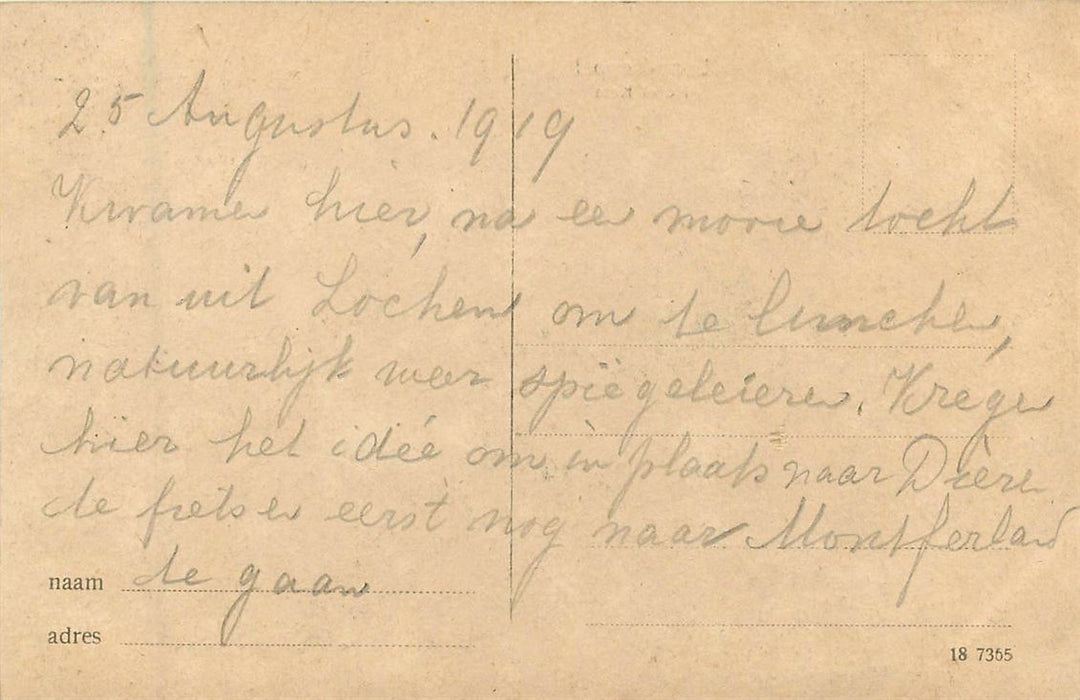 25 Augustus. 1919
Kwamen hier, na een mooie tocht
van uit Lochem om te lunchen,
natuurlijk weer spiegeleieren. Kregen
hier het idée om in plaats naar Dieren
te fietsen eerst nog naar Montferland
te gaan
naam
adres
18 7365